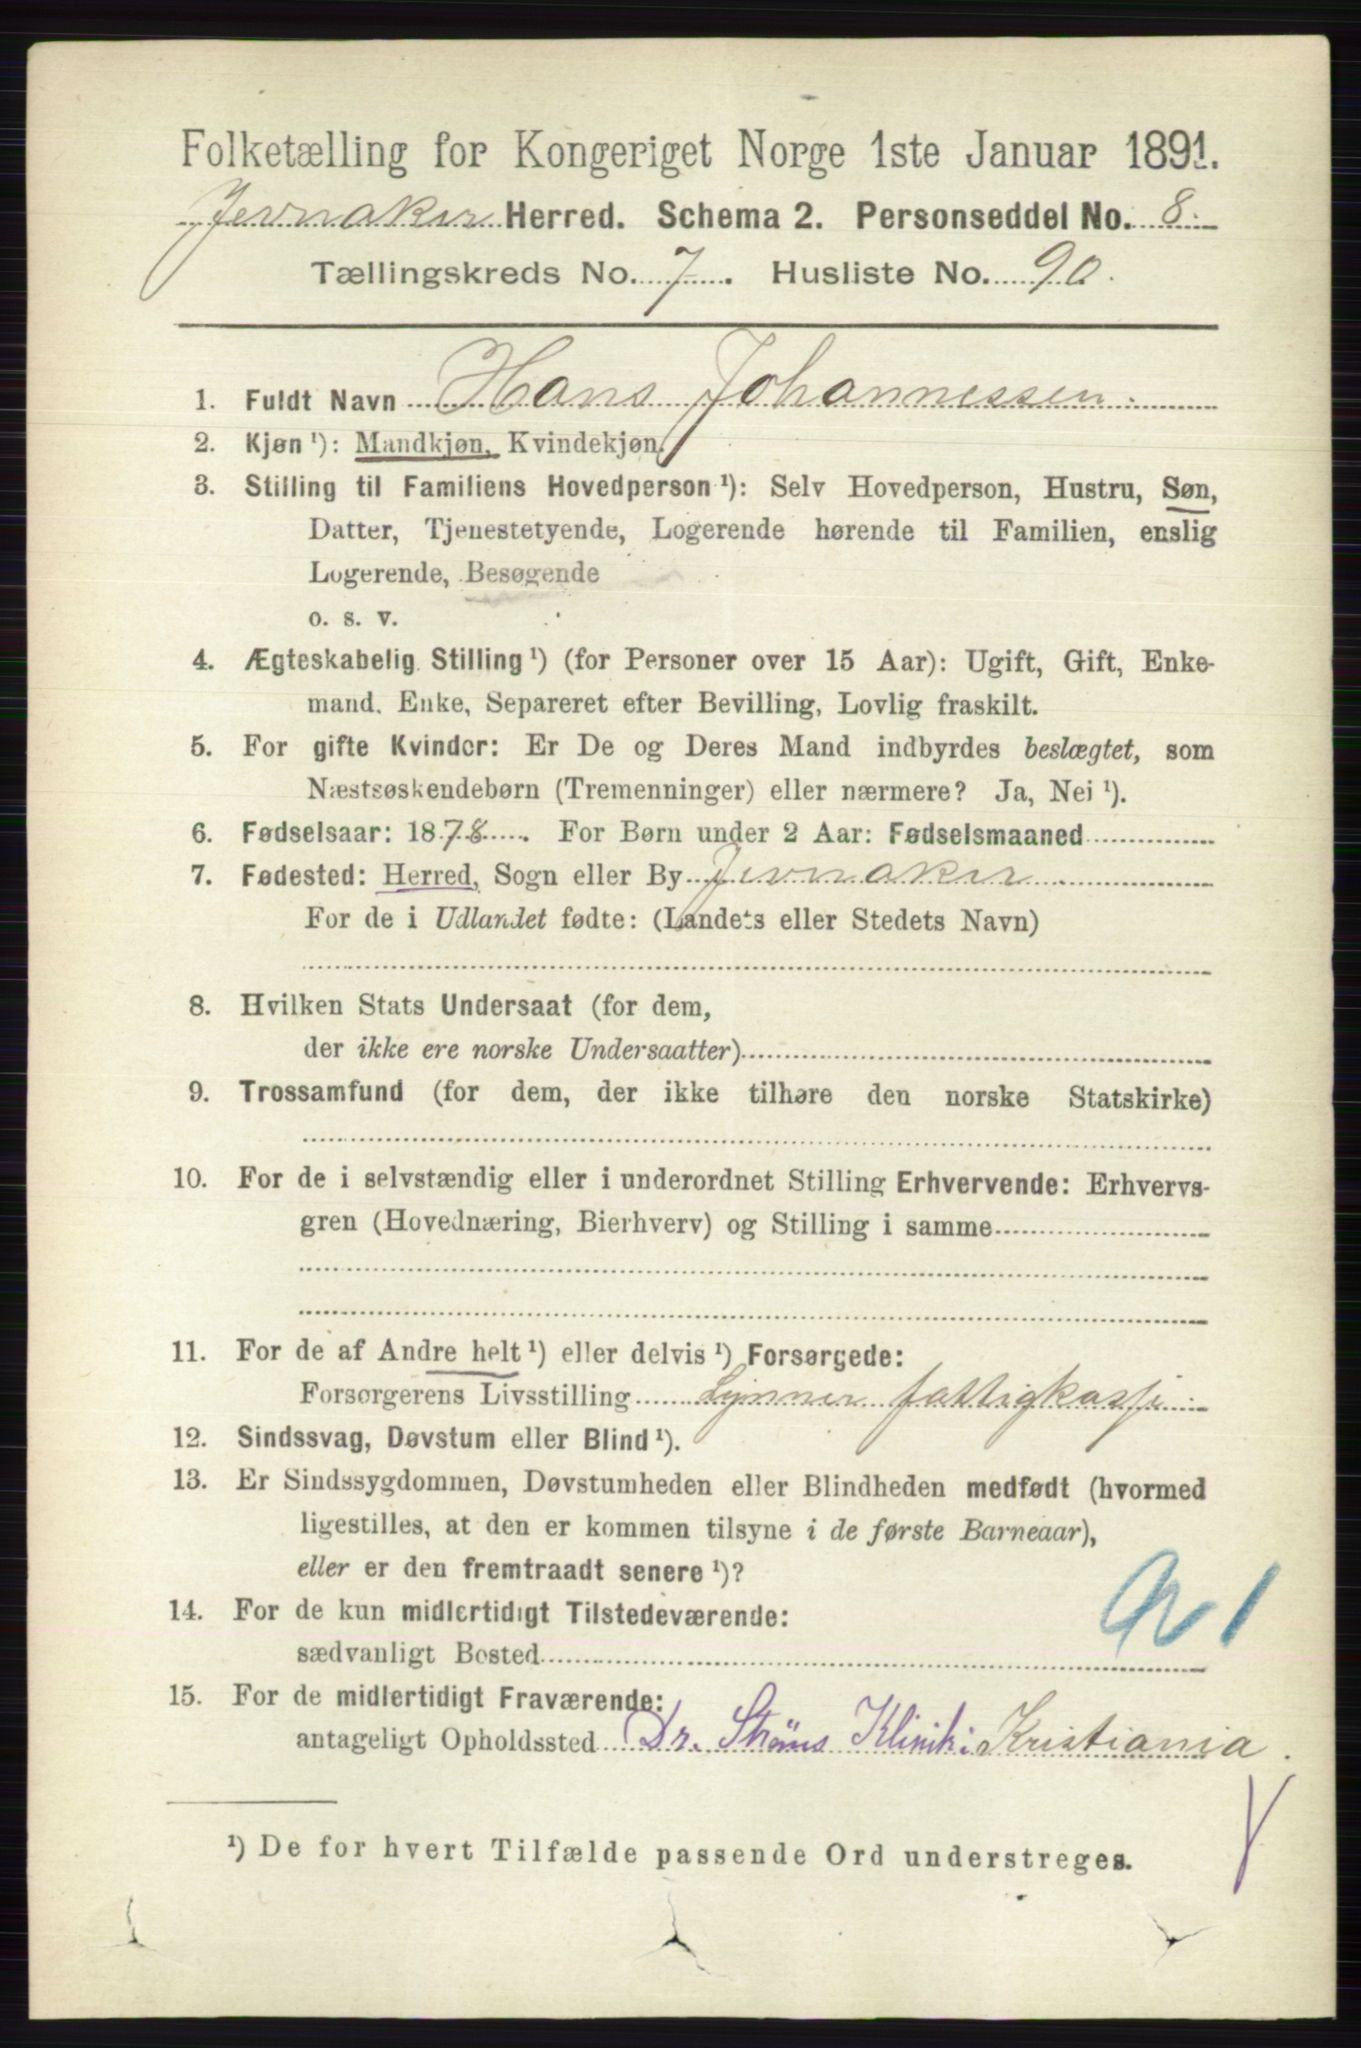 Folketælling for Kongeriget Norge 1ste Januar 1891.
Jevnaker Herred. Schema 2. Personseddel No. 8.
Tællingskreds No. 7. Husliste No. 90.
1. Fuldt Navn Hans Johannessen.
2. Kjøn ¹): Mandkjøn, Kvindekjøn.
3. Stilling til Familiens Hovedperson ¹): Selv Hovedperson, Hustru, Søn,
Datter, Tjenestetyende, Logerende hørende til Familien, enslig
Logerende, Besøgende
o. s. v.
4. Ægteskabelig Stilling ¹) (for Personer over 15 Aar): Ugift, Gift, Enke-
mand, Enke, Separeret efter Bevilling, Lovlig fraskilt.
5. For gifte Kvinder: Er De og Deres Mand indbyrdes beslægtet, som
Næstsøskendebørn (Tremenninger) eller nærmere? Ja, Nei ¹).
6. Fødselsaar: 1878. For Børn under 2 Aar: Fødselsmaaned
7. Fødested: Herred, Sogn eller By Jevnaker
For de i Udlandet fødte: (Landets eller Stedets Navn)
8. Hvilken Stats Undersaat (for dem,
der ikke ere norske Undersaatter)
9. Trossamfund (for dem, der ikke tilhøre den norske Statskirke)
10. For de i selvstændig eller i underordnet Stilling Erhvervende: Erhvervs-
gren (Hovednæring, Bierhverv) og Stilling i samme
11. For de af Andre helt ¹) eller delvis ¹) Forsørgede:
Forsørgerens Livsstilling Lynner fattigkasse
12. Sindssvag, Døvstum eller Blind ¹).
13. Er Sindssygdommen, Døvstumheden eller Blindheden medfødt (hvormed
ligestilles, at den er kommen tilsyne i de første Barneaar),
eller er den fremtraadt senere ¹)?
14. For de kun midlertidigt Tilstedeværende:
sædvanligt Bosted
15. For de midlertidigt Fraværende:
antageligt Opholdssted Dr. Strøms Klinik: Kristiania.
¹) De for hvert Tilfælde passende Ord understreges.